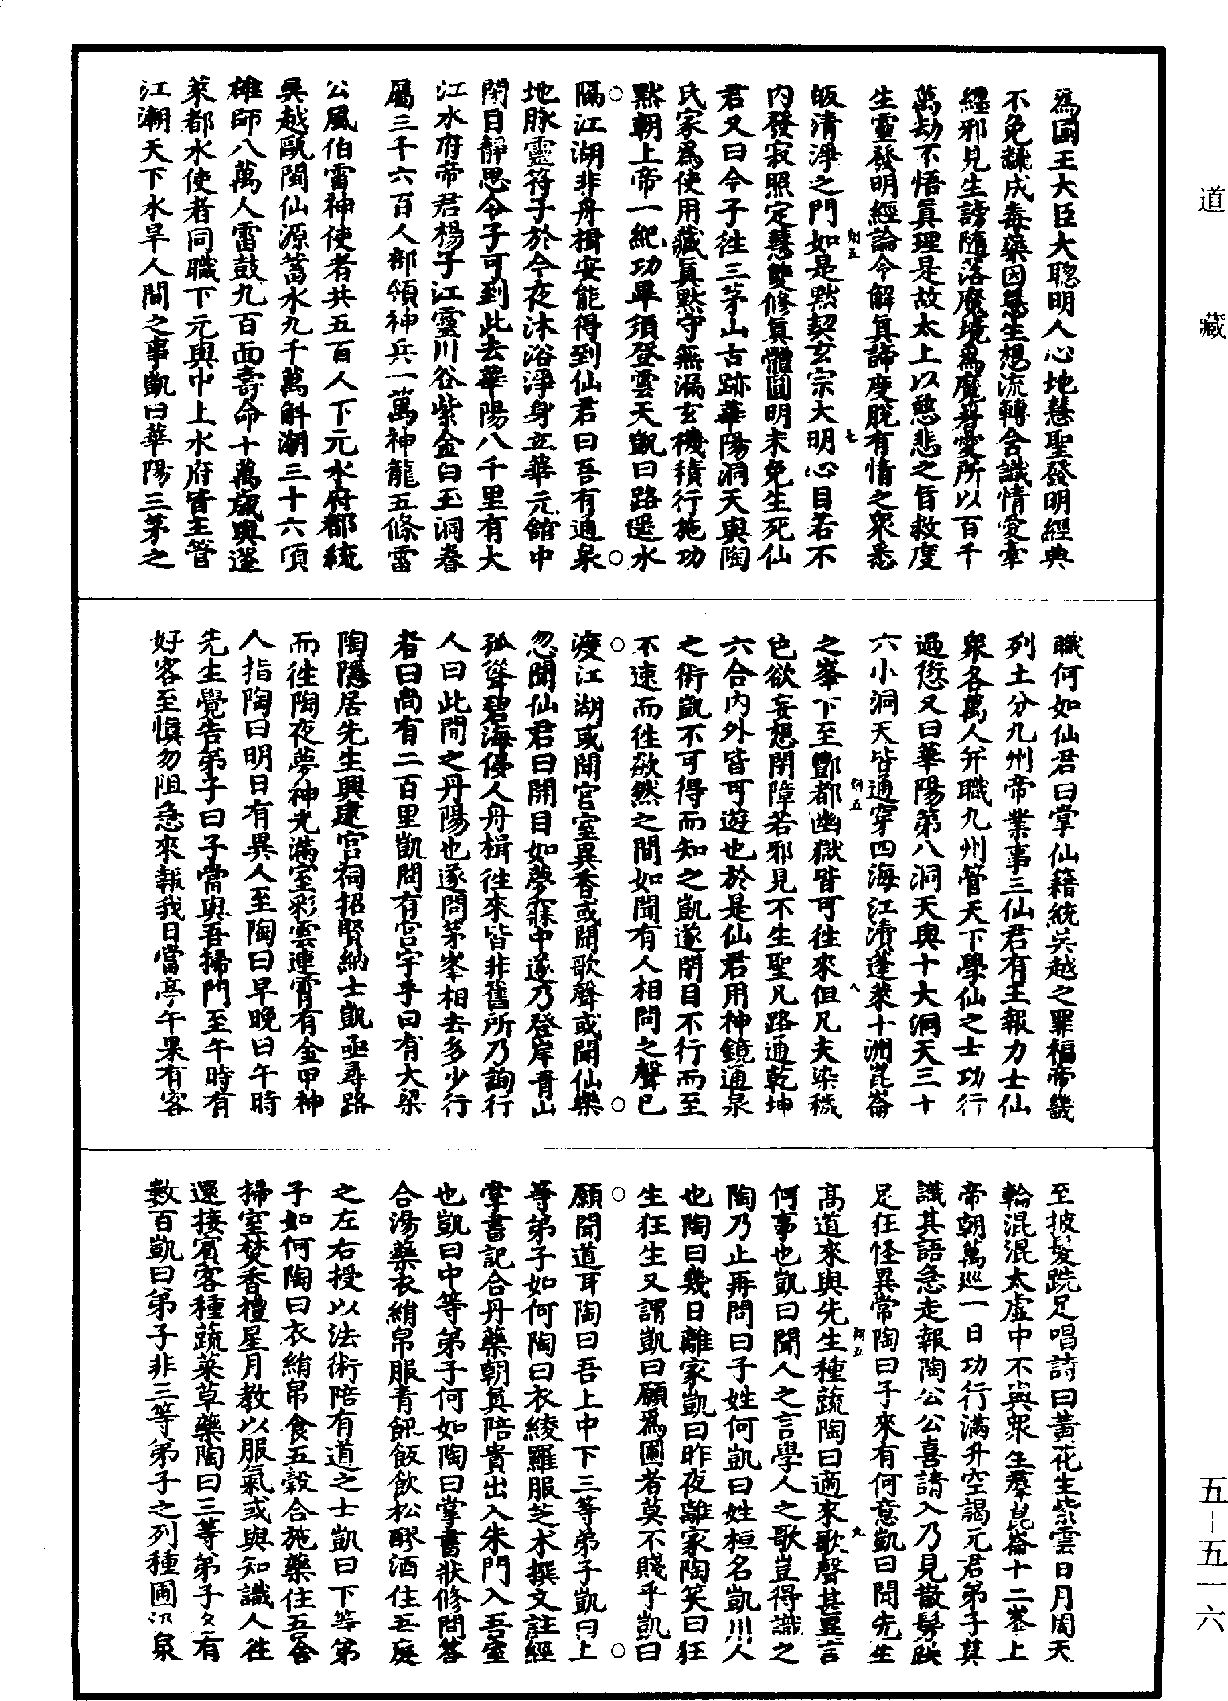 為國王大臣大聰明人心地慧聖發明經典
不免讒戌毒藥因慈生想流轉含識情愛牽
纏邪見生謗墮落魔境為魔眷愛所以百千
萬劫不悟眞理是故太上以慈悲之旨救度
生靈發明經論令解眞諦度脫有情之眾悉
皈清淨之門如是默契玄宗大明心目若不
內發寂照定慧雙修眞體圓明未免生死仙
君又曰今子往三茅山古跡華陽洞天與陶
氏家為使用藏眞默守無漏玄機積行施功
默朝上帝一紀功畢須登雲天凱曰路遥水
隔江湖非舟楫安能得到仙君曰吾有通泉
地脉靈符子於今夜沐浴淨身立華元舘中
閉目靜思令子可到此去華陽八千里有大
江水府帝君楊子江靈川谷紫金白玉洞眷
屬三千六百人部領神兵一萬神龍五條雷
公風伯雷神使者共五百人下元水府都統
吳越甌閩仙源蓄水九千萬斛湖三十六項
雄師八萬人雷鼓九百面壽命十萬歲與蓬
萊都水使者同職下元與中上水府皆主管
江潮天下水旱人間之事凱曰華陽三茅之
職何如仙君曰掌仙籍統吳越之罪福帝畿
列土分九州帝業事三仙君有主報力士仙
眾各萬人并職九州管天下學仙之士功行
過愆又曰華陽第八洞天與十大洞天三十
六小洞天皆通穿四海江濟蓬萊十洲崑崙
之峯下至酆都幽獄皆可往來但凡夫染穢
色欲妄想閉障若邪見不生聖凡路通乾坤
六合內外皆可遊也於是仙君用神鏡通泉
之術凱不可得而知之凱遂閉目不行而至
不速而往歘然之間如聞有人相問之聲已
渡江湖或聞宮室異香或聞歌聲或聞仙樂
忽聞仙君曰開目如夢寐中遂乃登岸青山
孤聳碧海侵人舟楫往來皆非舊所乃詢行
人曰此間之丹陽也遂問茅峯相去多少行
者曰尚有二百里凱問有宮宇乎曰有大梁
陶隱居先生興建宮祠招賢納士凱亟尋路
而往陶夜夢神光滿室彩雲連霄有金甲神
人指陶曰明日有異人至陶曰早晚曰午時
先生覺告弟子曰子當與吾掃門至午時有
好客至慎勿阻急來報我日當亭午果有客
至披髮跣足唱詩曰黃花生紫雲日月周天
輪混混太虛中不與眾生羣崑崙十二峯上
帝朝萬巡一日功行滿升空謁元君弟子莫
識其語急走報陶公公喜請入乃見散髮跣
足狂怪異常陶曰子來有何意凱曰聞先生
高道來與先生種蔬陶曰適來歌聲甚異言
何事也凱曰聞人之言學人之歌豈得識之
陶乃止再問曰子姓何凱曰姓桓名凱川人
也陶曰幾日離家凱曰昨夜離家陶笑曰狂
生狂生又謂凱曰願為圃者莫不賤乎凱曰
願聞道耳陶曰吾上中下三等弟子凱曰上
等弟子如何陶曰衣綾羅服芝术撰文註經
掌書記合丹藥朝眞陪貴出入朱門入吾室
也凱曰中等弟子何如陶曰掌書狀修問答
合湯藥衣綃帛服青飢飯飲松醪酒住吾庭
之左右授以法術陪有道之士凱曰下等弟
子如何陶曰衣綃帛食五穀合施藥住五舍
掃室焚香禮星月教以服氣或與知識人往
還接賓客種蔬菜草藥陶曰三等弟子各有
數百凱曰弟子非三等弟子之列種圃汲泉
道藏
五—五一六